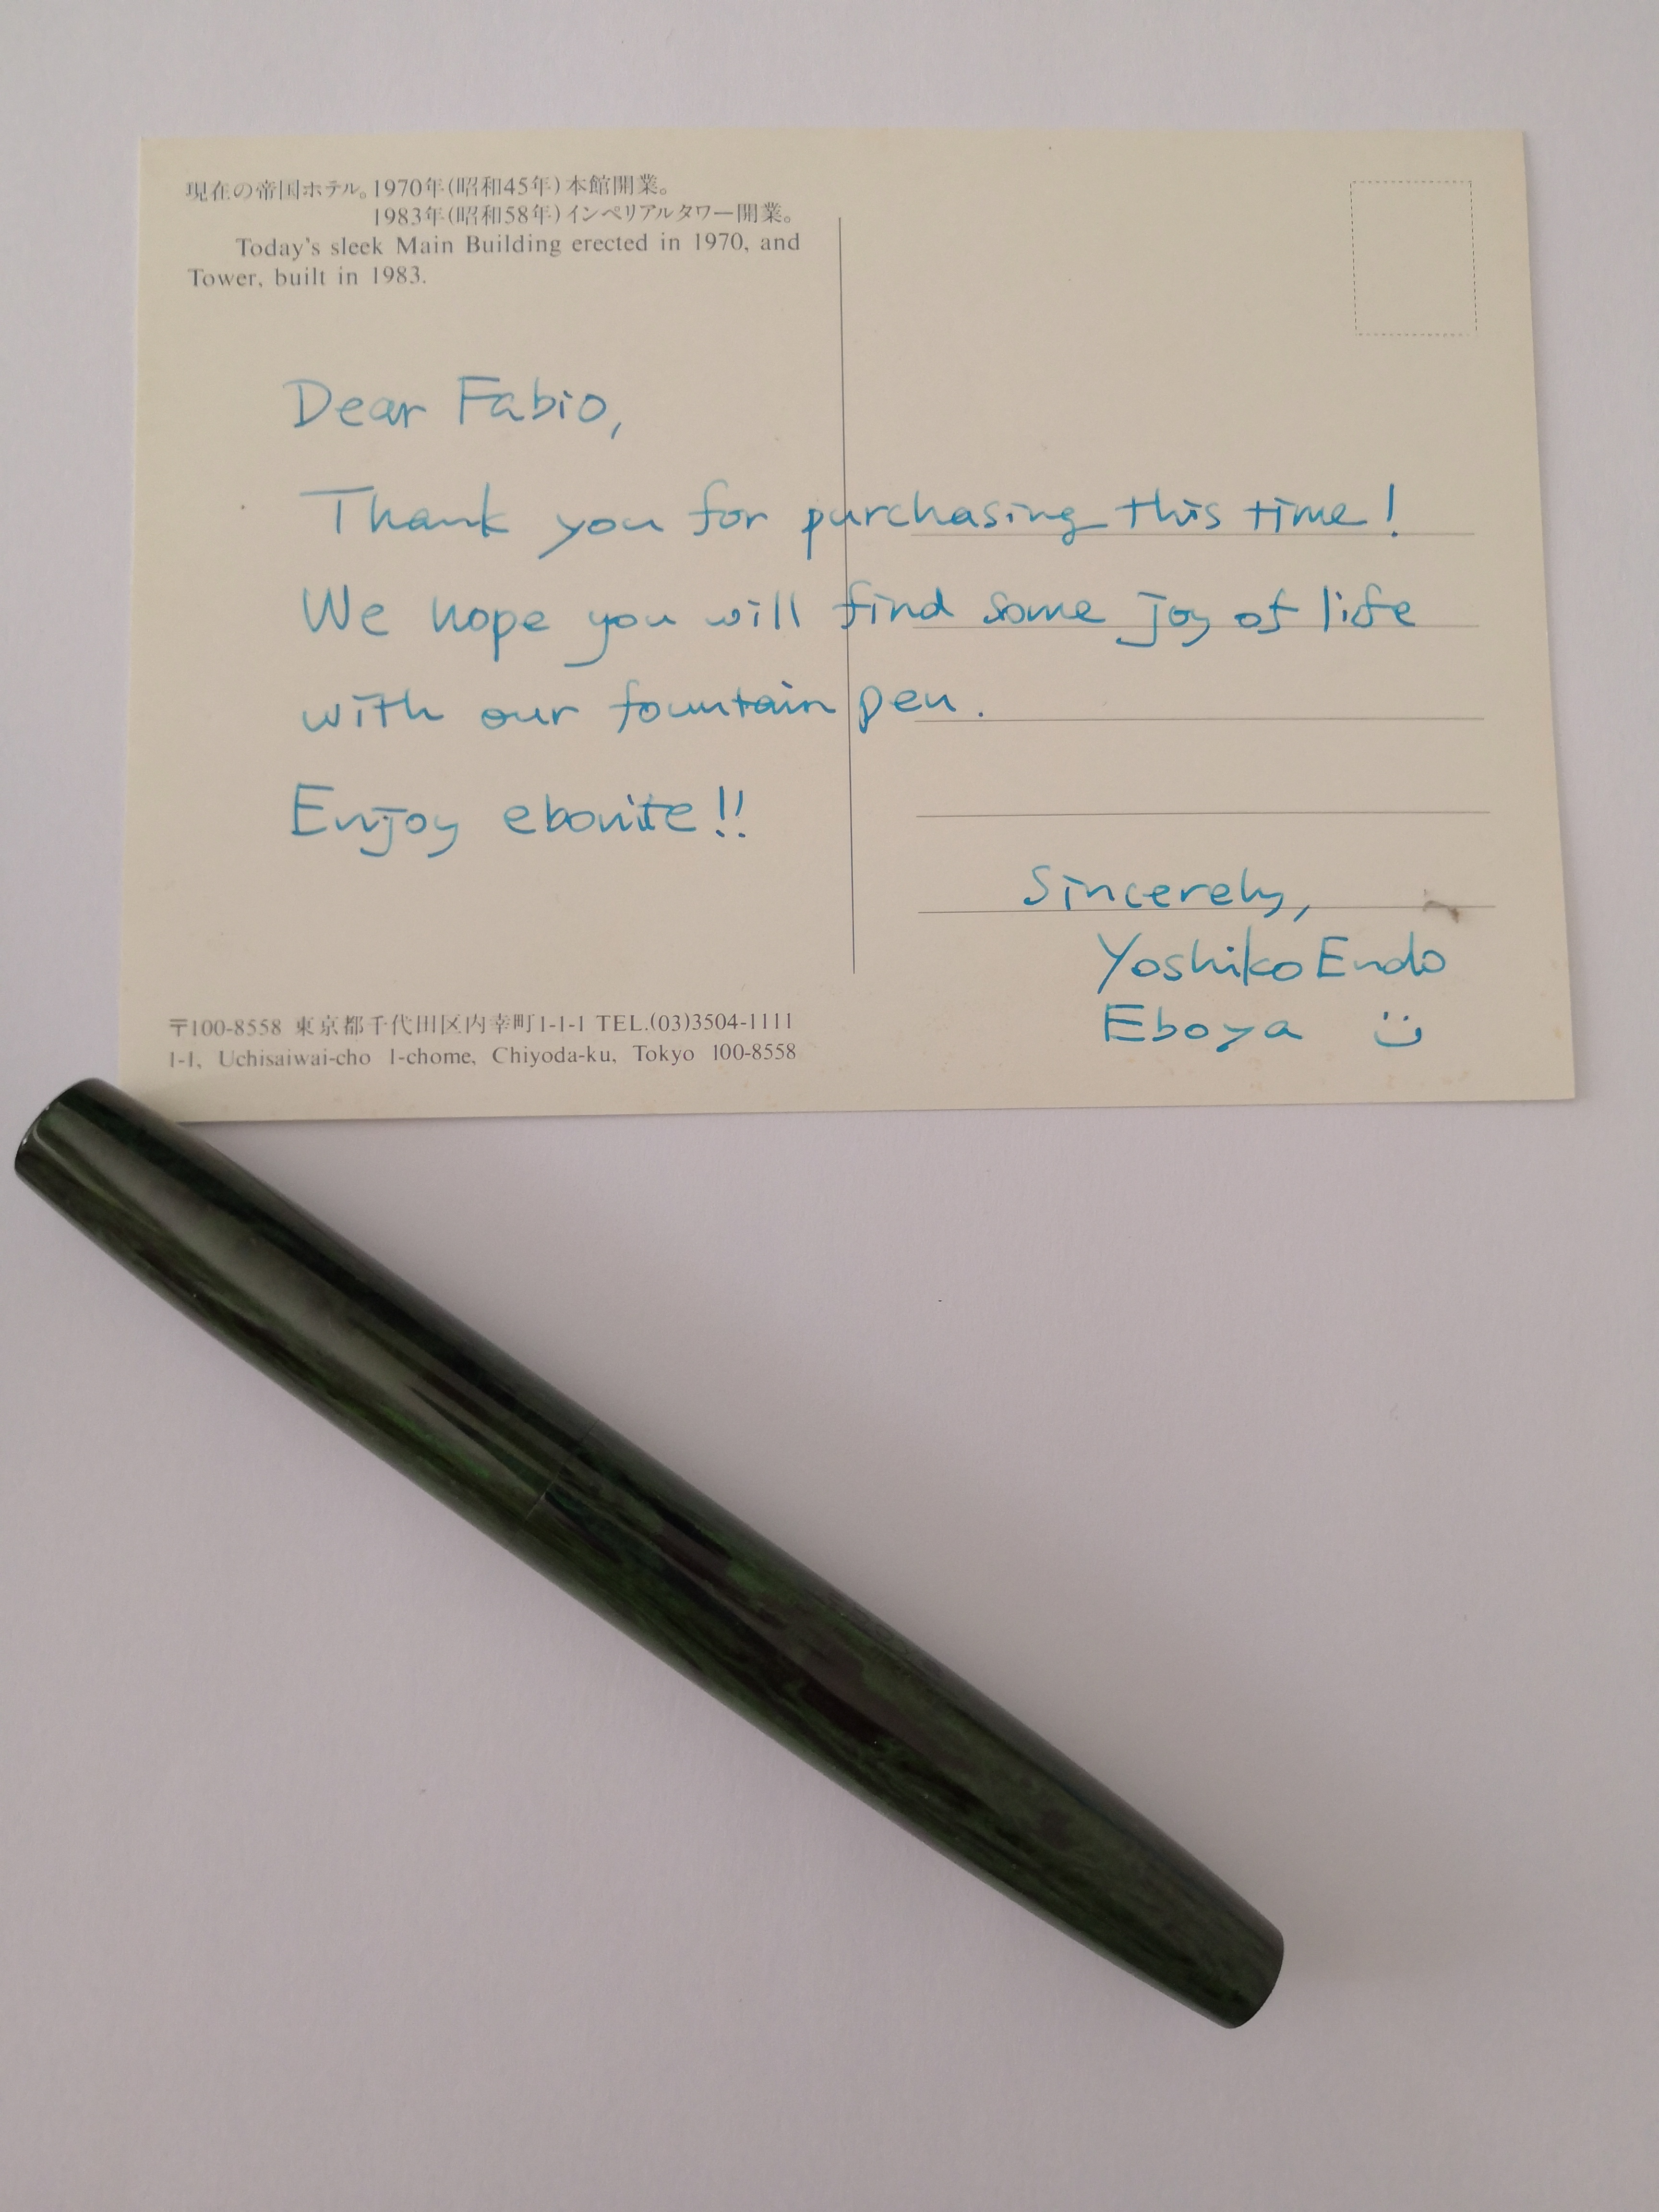 現在の帝国ホテル。1970年(昭和45年)本館開業。
1983年(昭和58年)インペリアルタワー開業。
Today's sleek Main Building erected in 1970, and
Tower, built in 1983.
Dear Fabio,
Thank you for purchasing this time!
We hope you will find some joy of life
with our fountain pen.
Enjoy ebonite!!
Sincerely,
Yoshiko Endo
Eboya
〒100-8558 東京都千代田区内幸町1-1-1 TEL.(03)3504-1111
1-1, Uchisaiwai-cho 1-chome, Chiyoda-ku, Tokyo 100-8558